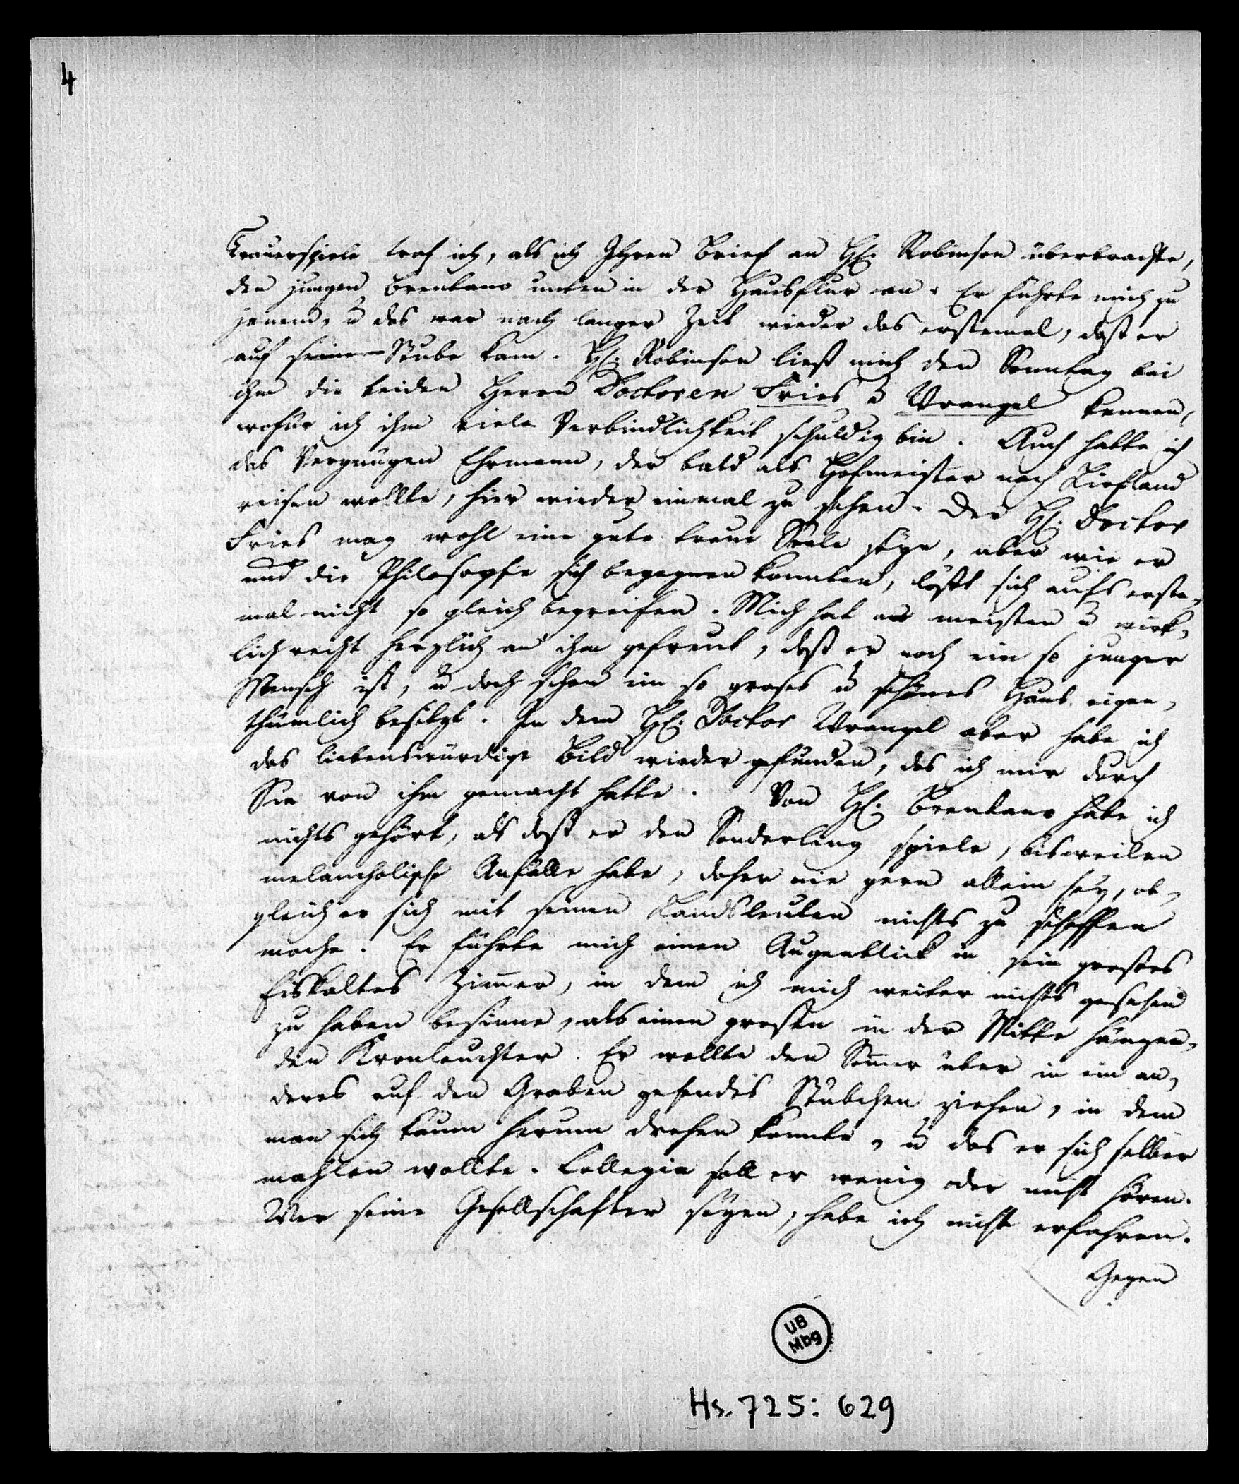 4
Trauerspiele traf ich, als ich Ihren Brief an H. Robinson überbrachte,
den jungen Brentano unten in der Hausflur an. Er führte mich zu
jenem, u das war nach langer Zeit wieder das erstemal, daß er
auf seine Stube kam. H. Robinson ließ mich den Sonntag bei
ihm die beiden Herrn Doctoren Fries u Wrangel kennen,
wofür ich ihm viele Verbindlichkeit schuldig bin. Auch hatte ich
das Vergnügen Ehrmann, der bald als Hofmeister nach Liefland
reisen wollte, hier wieder einmal zu sehen. Der H. Doctor
Fries mag wohl eine gute treue Seele seyn, aber wie er
und die Philosophie sich begegnen konnten, läßt sich aufs erste-
mal nicht so gleich begreifen. Mich hat am meisten u wirk-
lich recht herzlich an ihm gefreut, daß er noch ein so junger
Mensch ist, u doch schon ein so groses u schönes Haus eigen-
thümlich besitzt. In dem H. Doctor Wrangel aber habe ich
das liebenswürdige Bild wieder gefunden, das ich mir durch
Sie von ihm gemacht hatte. Von H. Brentano habe ich
nichts gehört, als daß er den Sonderling spiele, bisweilen
melancholische Anfälle habe, daher nie gern allein sey, ob-
gleich er sich mit seinen Landsleuten nichts zu schaffen
mache. Er führte mich einen Augenblick in sein großes
eiskaltes Zimmer, in dem ich mich weiter nichts gesehen
zu haben besinne, als einen großen in der Mitte hängen-
den Kronleuchter. Er wollte den Sommer über in ein an-
deres auf den Graben gehendes Stübchen ziehen, in dem
man sich kaum herum drehen konnte, u das er sich selber
mahlen wollte. Collegia soll er wenig oder nicht hören.
Wer seine Gesellschafter seyen, habe ich nicht erfahren.
Gegen
UB
Mbg
Hs. 725: 629